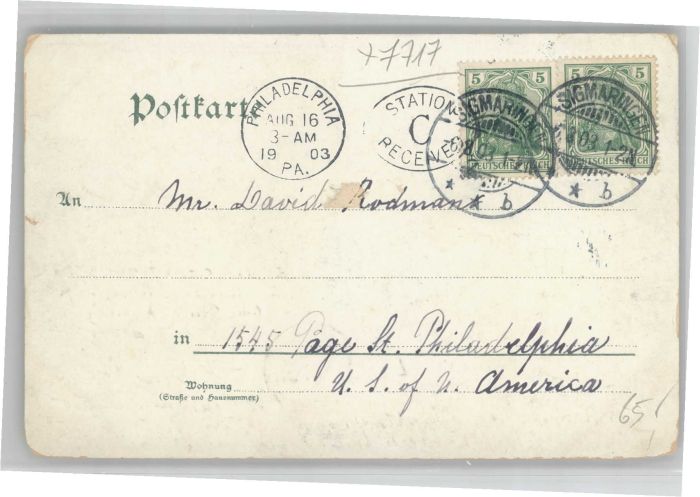 +7717
5 5
Postkarte
PHILADELPHIA
AUG 16
3-AM
19 03
PA.
STATION
C
RECEIVED
SIGMARINGEN
* b
DEUTSCHES REICH
SIGMARINGEN
6.8.03. 1-2N
* b
DEUTSCHES REICH
An Mr. David Rodman
in 1545 Page St. Philadelphia
Wohnung
(Straße und Hausnummer)
U. S. of N. America
65!